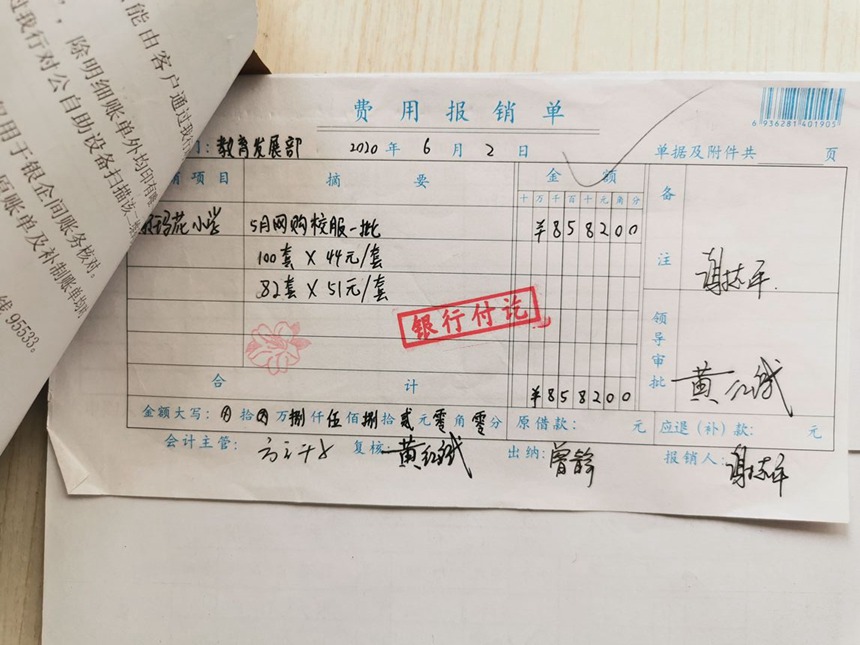 能由客户通过我行
，除明细账单外均印有
过我行对公自助设备扫描该二
仅用于银企间账务核对。
原账单及补制账单均
线 95533。
费用报销单
6 936281 401905
门：教育发展部 2020 年 6 月 2 日 单据及附件共 页
项目 摘要 金额 备注
十万千百十元角分
玛花小学 5月网购校服一批 ¥858200
100套 X 44元/套
82套 X 51元/套
银行付讫
领导审批 黄红斌
合计 ¥858200
金额大写： 拾 万捌仟伍佰捌拾贰元零角零分 原借款： 元 应退（补）款： 元
会计主管： 复核：黄红斌 出纳：曾 报销人：谢